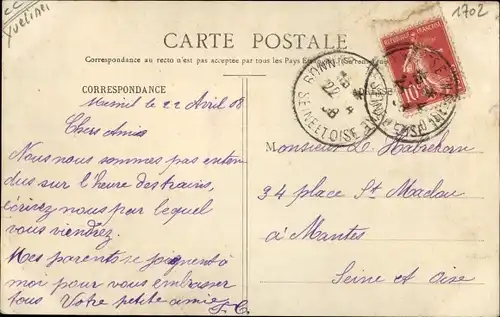 Yvelines
1702
CARTE POSTALE
Correspondance au recto n'est pas acceptée par tous les Pays
CORRESPONDANCE
Mesnil le 22 Avril 08
Chers Amis
Nous nous sommes pas enten
dus sur l'heure des trains,
écrivez nous par lequel
vous viendrez.
Mes parents se joignent à
moi pour vous embrasser
tous Votre petite amie
BONN
22
4
08
SEINE ET OISE
10
Monsieur L. Habrekorn
34 place St Maclou
à Mantes
Seine et Oise